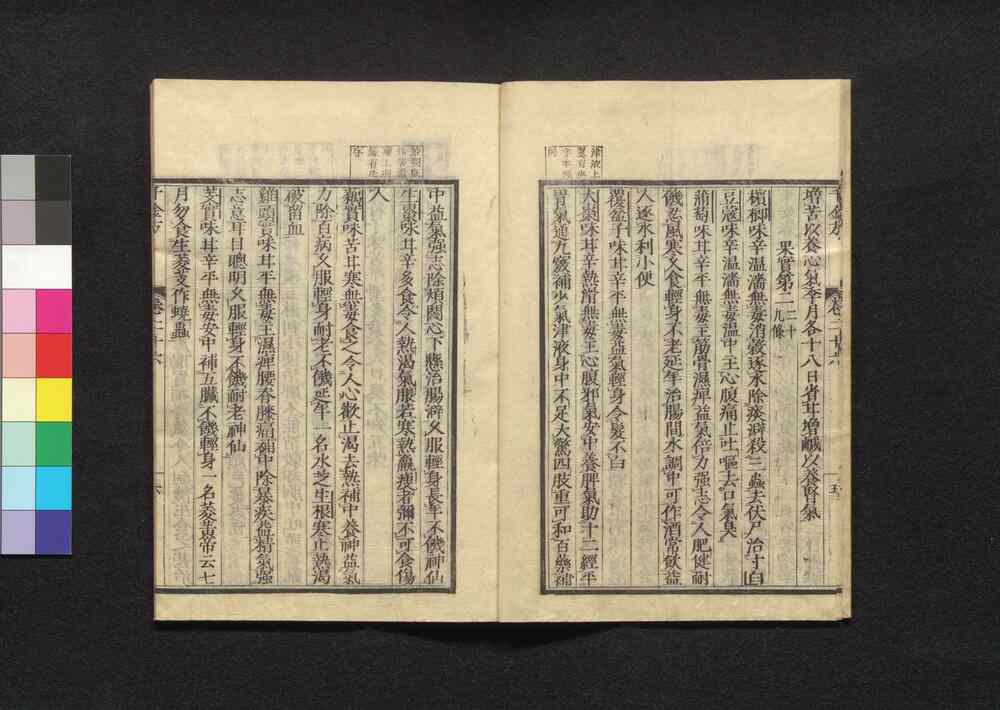 增苦以養心氣季月各十八日省甘增鹹以養腎氣
果實第二二十九條
檳榔味辛温濇無毒消穀逐水除痰澼殺三蟲去伏尸治寸白
豆蔻味辛温濇無毒温中主心腹痛止吐嘔去口氣臭
蒲萄味甘辛平無毒主筋骨濕痺益氣倍力强志令人肥健耐
饑忍風寒久食輕身不老延年治腸間水調中可作酒常飲益
人逐水利小便
覆盆子味甘辛平無毒益氣輕身令髮不白
大棗味甘辛熱滑無毒主心腹邪氣安中養脾氣助十二經平
胃氣通九竅補少氣津液身中不足大驚四肢重可和百藥補
中益氣强志除煩悶心下懸治腸澼久服輕身長年不饑神仙
生棗味甘辛多食令人熱渴氣脹若寒熱羸瘦者彌不可食傷
人
藕實味苦甘寒無毒食之令人心歡止渴去熱補中養神益氣
力除百病久服輕身耐老不饑延年一名水芝生根寒止熱渴
破留血
雞頭實味甘平無毒主濕痺腰脊膝痛補中除暴疾益精氣强
志意耳目聰明久服輕身不饑耐老神仙
芰實味甘辛平無毒安中補五臟不饑輕身一名菱黃帝云七
月勿食生菱芰作蟯蟲
千金方
卷二十六
六